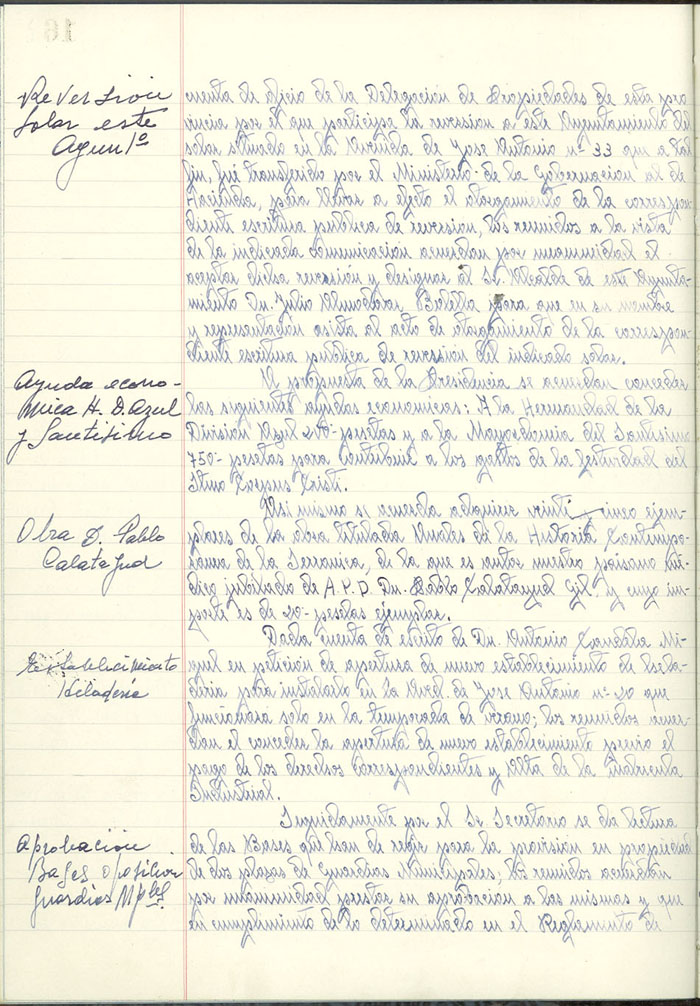 Reversion
Solar este
Ayunto
cuenta de oficio de la Delegacion de Propiedades de esta pro
vincia por el que participa la reversion a este Ayuntamiento del
solar situado en la Avenida de Jose Antonio nº 33 que a tal
fin, fué transferido por el Ministerio de la Gobernacion al de
Hacienda, para llevar a efecto el otorgamiento de la correspon
diente escritura publica de reversion, los reunidos a la vista
de la indicada comunicacion acuerdan por unanimidad el
aceptar dicha reversión y designar al Sr. Alcalde de este Ayunta-
miento Dn. Julio Almodovar Botella para que en su nombre
y representacion asista al acto de otorgamiento de la correspon
diente escritura publica de reversion del indicado solar.
Ayuda econo-
mica H. D. Azul
y Santisimo
A propuesta de la Presidencia se acuerdan conceder
las siguientes ayudas economicas: A la Hermandad de la
Division Azul 200- pesetas y a la Mayordomia del Santisimo
750- pesetas para contribuir a los gastos de la festividad del
Stmo Corpus Cristi.
Obra D. Pablo
Calatayud
Asi mismo se acuerda adquirir veinti-cinco ejem-
plares de la obra titulada Anales de la Historia Contempo-
ranea de la Serranica, de la que es autor nuestro paisano Mé-
dico jubilado de A.P.D. Dn. Pablo Calatayud Gil. y cuyo im-
porte es de 20- pesetas ejemplar.
Establecimiento
Heladeria
Dada cuenta de escrito de Dn. Antonio Candela Mi-
quel en peticion de apertura de nuevo establecimiento de hela-
deria para instalarlo en la Avda de Jose Antonio nº 20 que
funcionara solo en la temporada de verano; los reunidos acuer-
dan el conceder la apertura de nuevo establecimiento previo el
pago de los derechos correspondientes y Alta de la Matricula
Industrial.
Aprobacion
Bases oposicion
guardias Mples.
Seguidamente por el Sr Secretario se da lectura
de las Bases que han de regir para la provision en propiedad
de dos plazas de Guardias Municipales, los reunidos acuerdan
por unanimidad prestar su aprobacion a las mismas y que
en cumplimiento de lo determinado en el Reglamento de